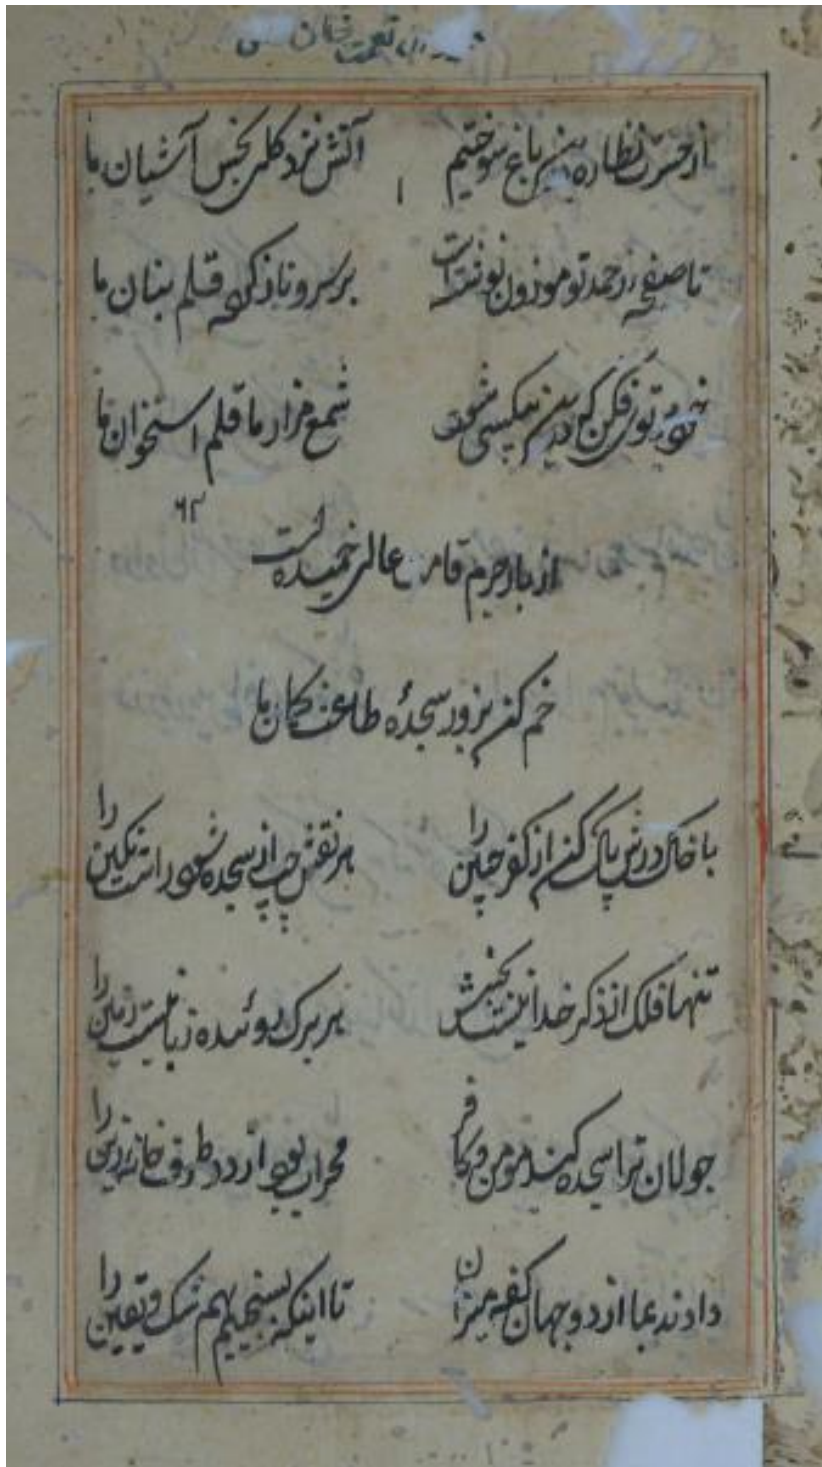 نعمت خان
از حسرت نظاره این باغ سوختیم آتش نزد کلی بخس آشیان ما
تا صفحه ز حمد تو موزون نو شد است بر سرو ناز کرد قلم بنان ما
تو فکن که درین بیکسی شمع مزار ما قلم استخوان ما
از بار جرم قامت عالی خمیده است
خم کن بزور سجدهٔ طاعت کمان ما
با خاک درش پاک کن از کفر جبین را هر نقش چپ از سجده شود راست نگین را
تنها فلک از ذکر خدا نیست بجنبش هر برک روئیده زبانیست زمین را
جولان ترا سجده کند مومن و کافر محراب بود از دو طرف خانه زین را
دادند بما از دو جهان کفه میزان تا اینکه بسنجیم بهم شک و یقین را